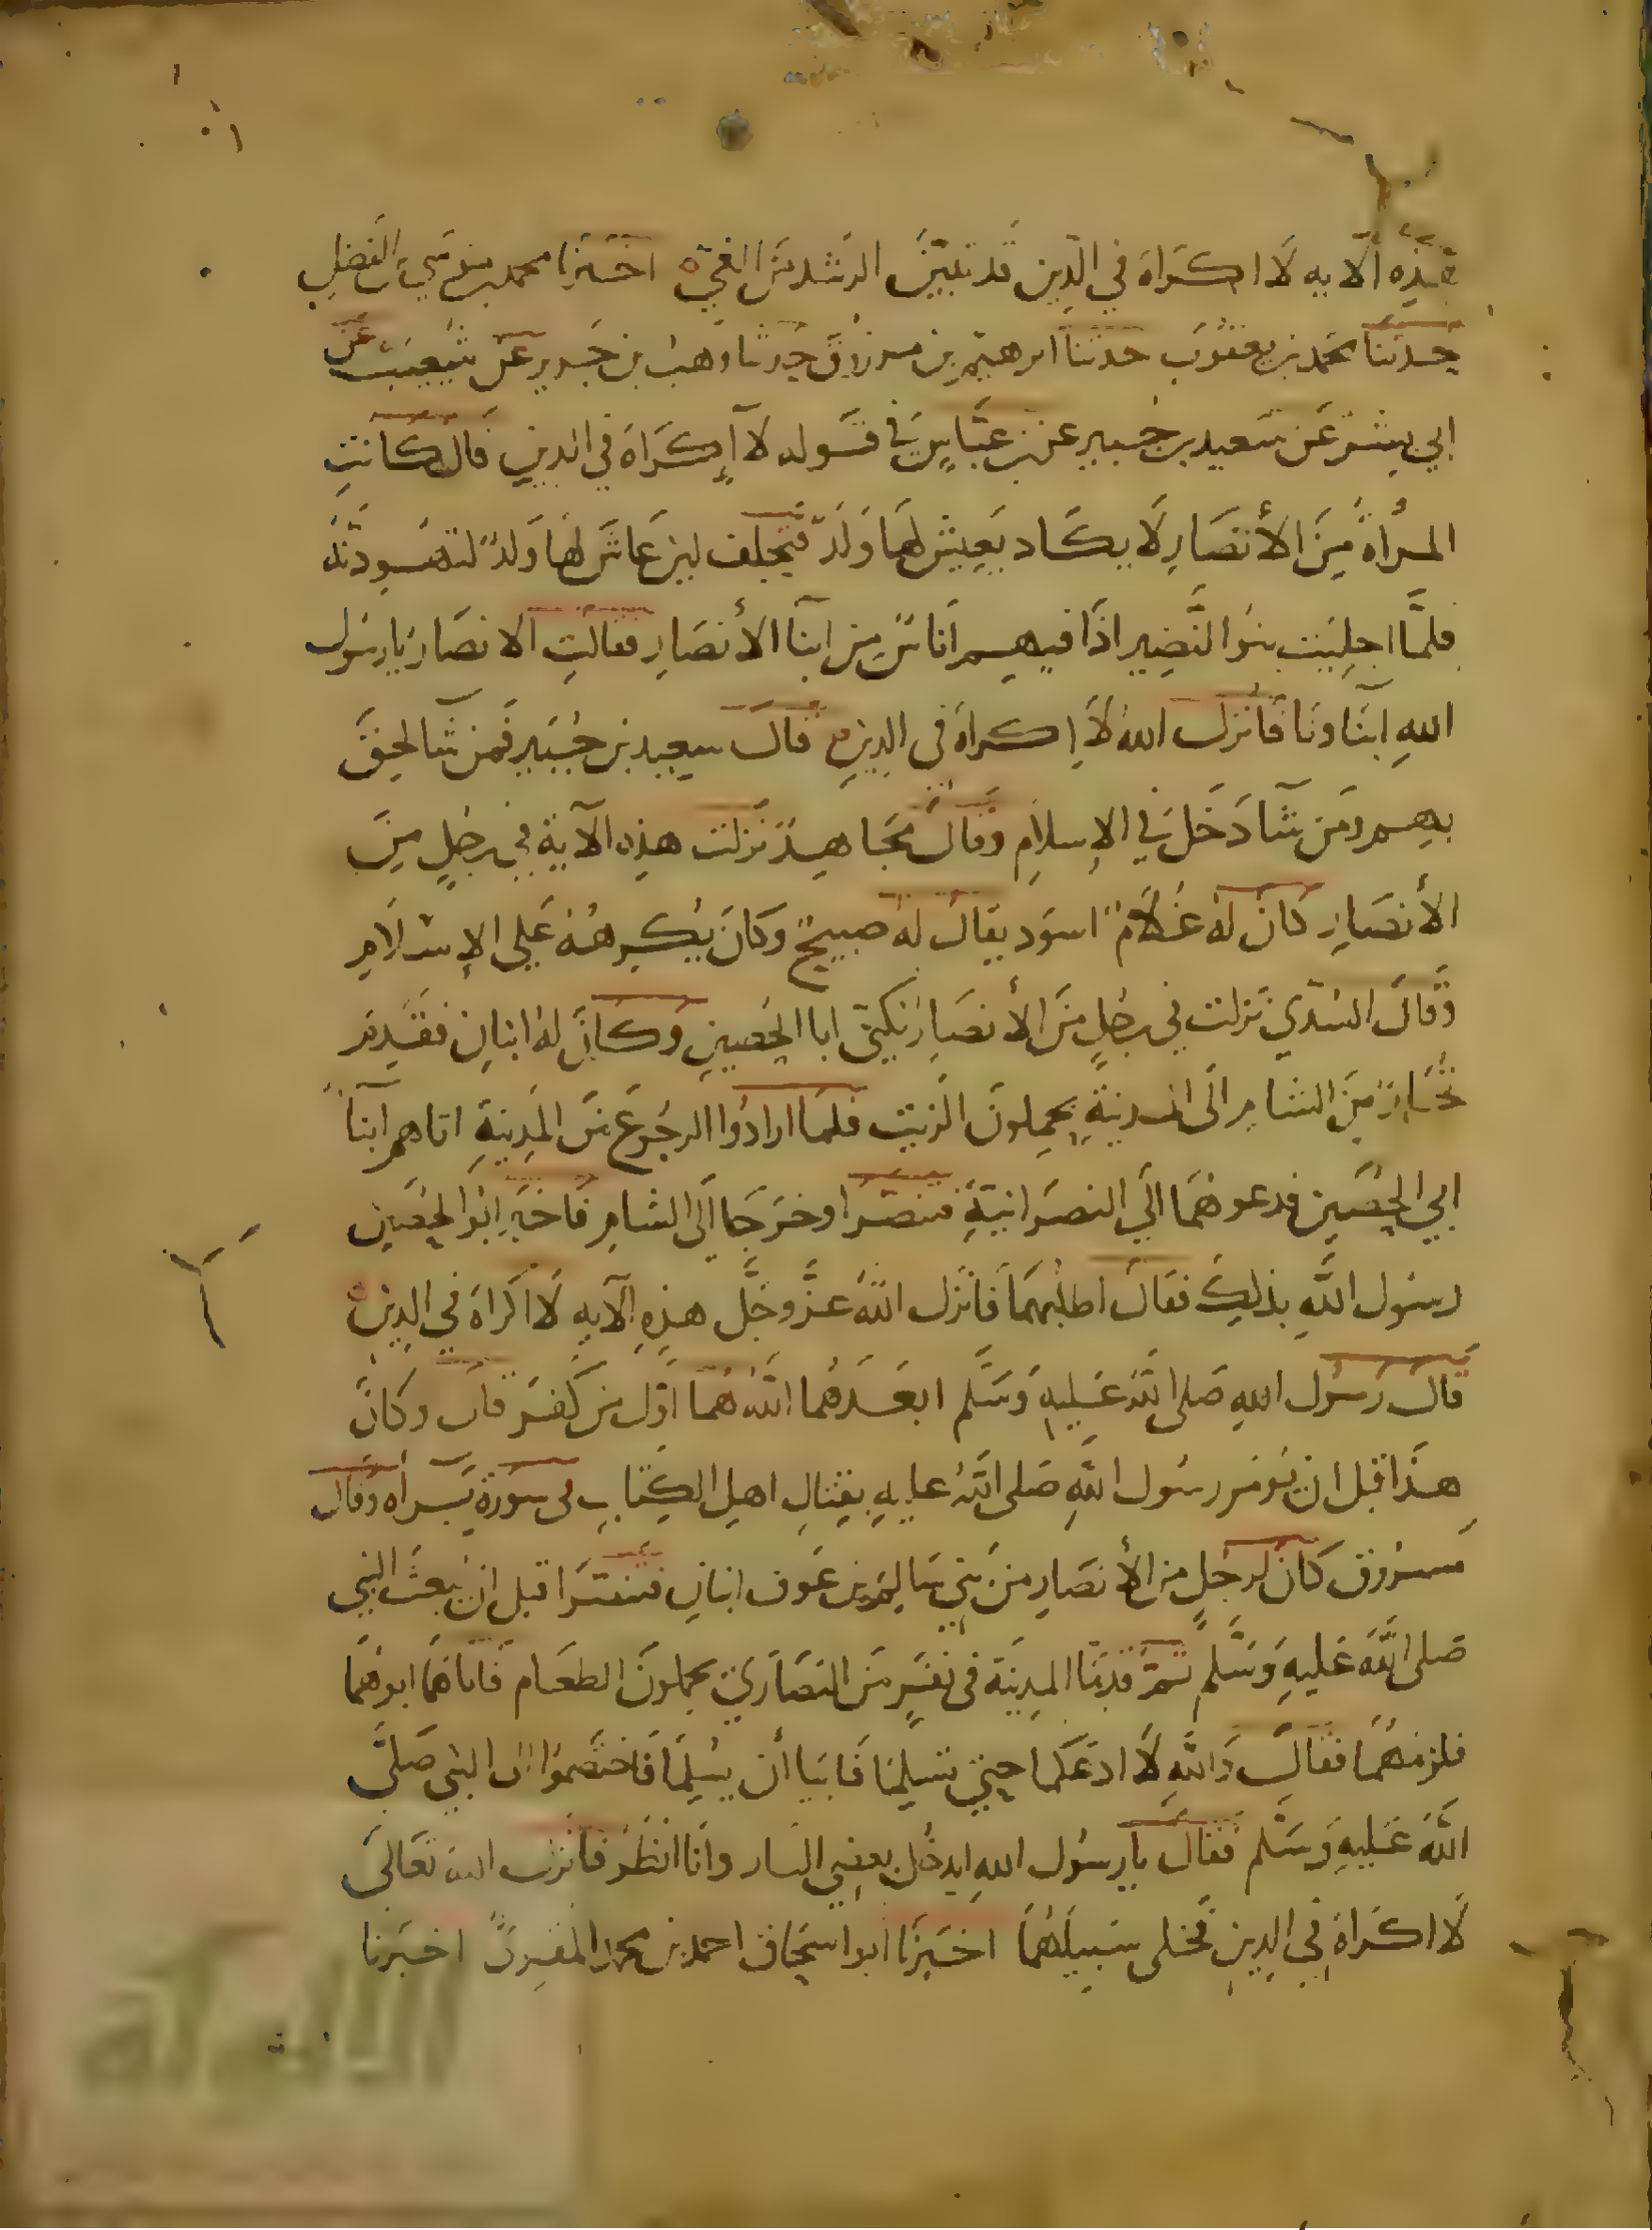 هذه الآيه لا اكراه في الدين قد تبين الرشد من الغي اخبرنا محمد بن موسى بن الفضل
حدثنا محمد بن يعقوب حدثنا ابرهيم بن مرزوق حدثنا وهب بن جرير عن شعبة عن
ابي بشر عن سعيد بن جبير عن بن عباس في قوله لا إكراه في الدين قال كانت
المرأة من الأنصار لا يكاد يعيش لها ولد فتحلف لين عاش لها ولد لتهودنه
فلما اجليت بنو النضير اذا فيهم اناس من ابنا الأنصار فقالت الانصار يا رسول
الله ابناونا فانزل الله لا إكراه في الدين قال سعيد بن جبير فمن شا لحق
بهم ومن شا دخل في الإسلام وقال مجاهد نزلت هذه الآية في رجل من
الأنصار كان له غلام اسود يقال له صبيح وكان يكرهه على الإسلام
وقال السدي نزلت في رجل من الأنصار يكنى ابا الحصين وكان له ابنان فقدم
تجار من الشام الى المدينة يحملون الزيت فلما ارادوا الرجوع من المدينة اتاهم ابنا
ابي الحصين فدعوهما الى النصرانية فتنصرا وخرجا الى الشام فاخبر ابو الحصين
رسول الله بذلك فقال اطلبهما فانزل الله عز وجل هذه الآيه لا اكراه في الدين
قال رسول الله صلى الله عليه وسلم ابعدهما الله هما اول من كفر قال وكان
هذا قبل ان يومر رسول الله صلى الله عليه بقتال اهل الكتاب في سورة براه وقال
مسروق كان لرجل من الأنصار من بني سالم بن عوف ابنان فتنصرا قبل ان يبعث النبي
صلى الله عليه وسلم ثم قدما المدينة في نفر من النصارى يحملون الطعام فاتاهما ابوهما
فلزمهما فقال والله لا ادعكما حتى تسلما فابيا أن يسلما فاختصموا الى النبي صلى
الله عليه وسلم فقال يا رسول الله ايدخل بعضي النار وانا انظر فانزل الله تعالى
لا اكراه في الدين فخلى سبيلهما اخبرنا ابو اسحاق احمد بن محمد المقري اخبرنا
الألوكة